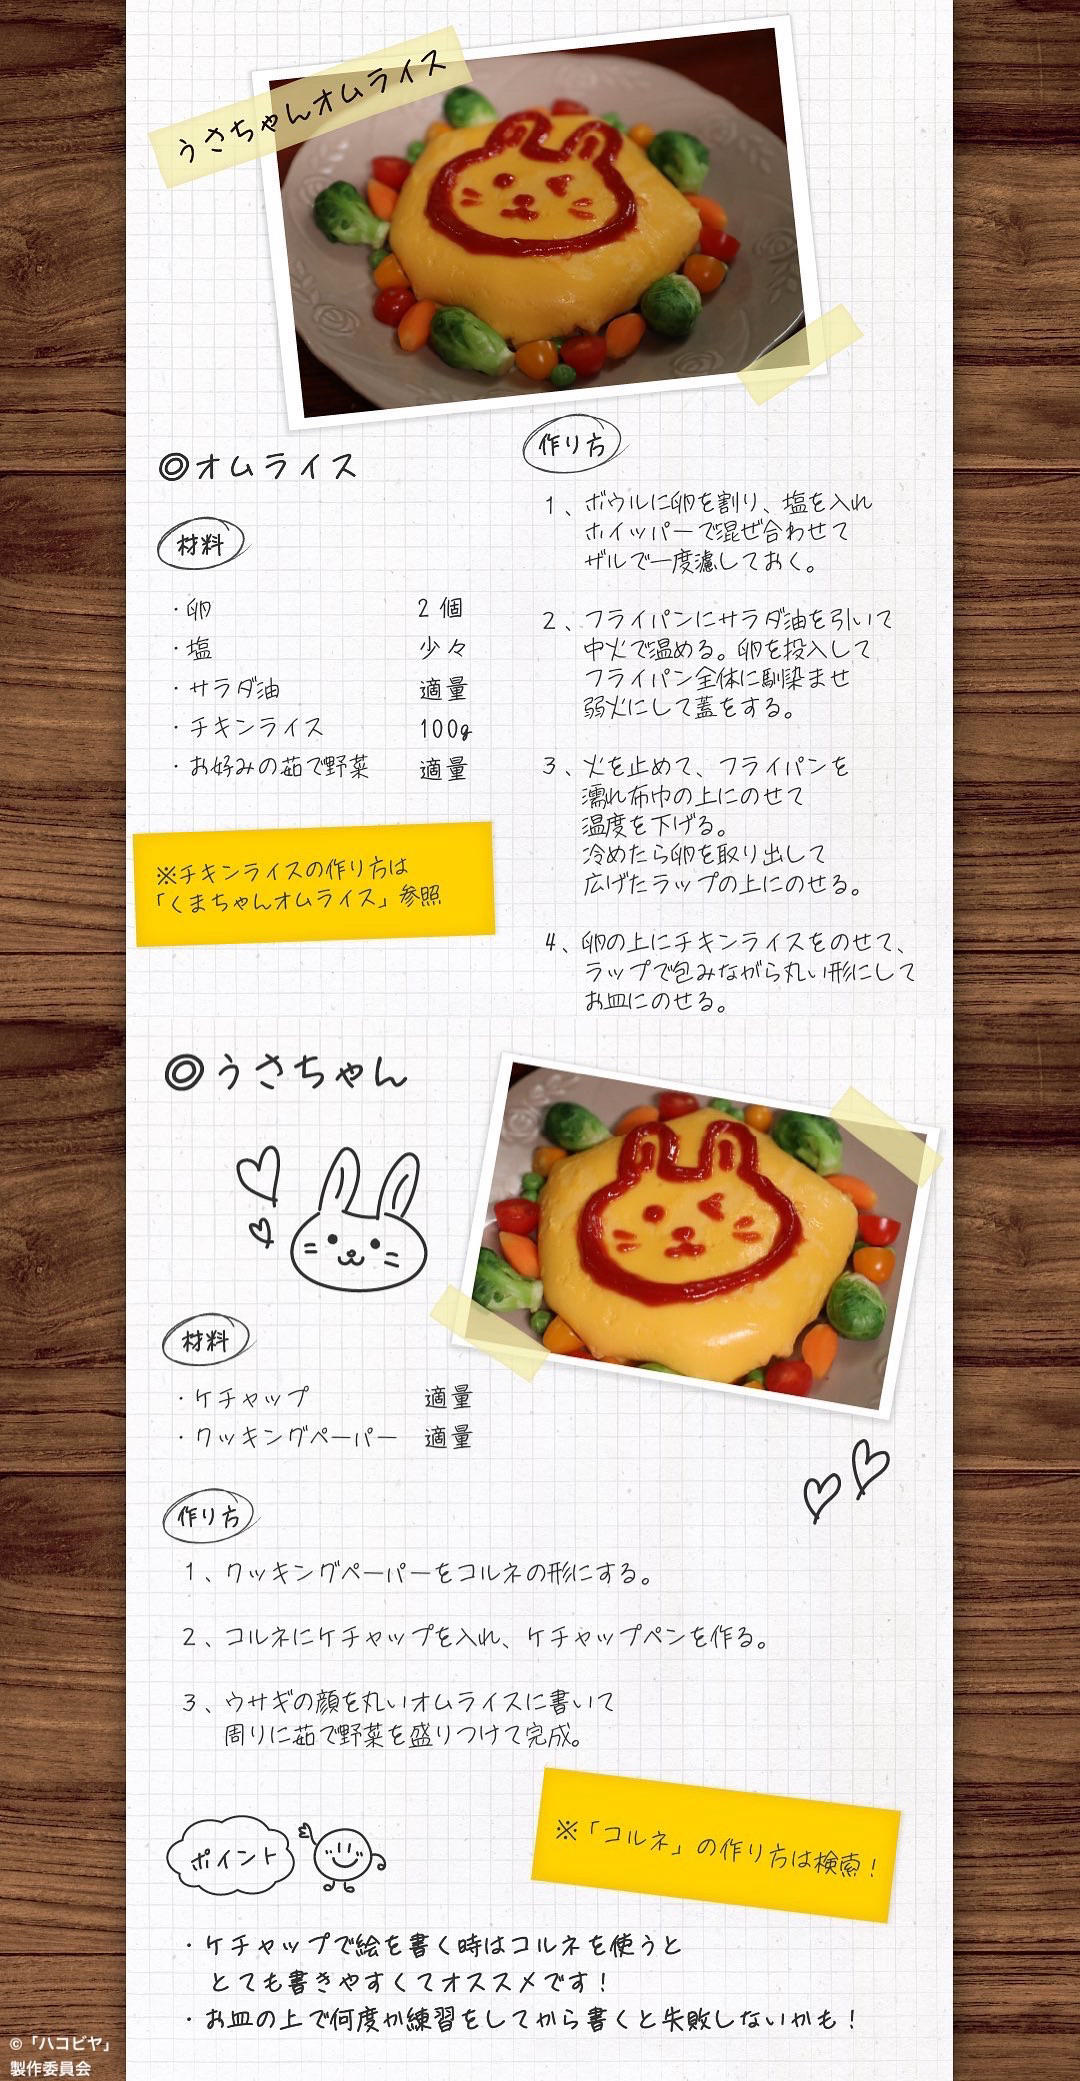 うさちゃんオムライス
◎オムライス
材料
・卵 2個
・塩 少々
・サラダ油 適量
・チキンライス 100g
・お好みの茹で野菜 適量
※チキンライスの作り方は
「くまちゃんオムライス」参照
作り方
1、ボウルに卵を割り、塩を入れ
ホイッパーで混ぜ合わせて
ザルで一度濾しておく。
2、フライパンにサラダ油を引いて
中火で温める。卵を投入して
フライパン全体に馴染ませ
弱火にして蓋をする。
3、火を止めて、フライパンを
濡れ布巾の上にのせて
温度を下げる。
冷めたら卵を取り出して
広げたラップの上にのせる。
4、卵の上にチキンライスをのせて、
ラップで包みながら丸い形にして
お皿にのせる。
◎うさちゃん
材料
・ケチャップ 適量
・クッキングペーパー 適量
作り方
1、クッキングペーパーをコルネの形にする。
2、コルネにケチャップを入れ、ケチャップペンを作る。
3、ウサギの顔を丸いオムライスに書いて
周りに茹で野菜を盛りつけて完成。
※「コルネ」の作り方は検索!
ポイント
・ケチャップで絵を書く時はコルネを使うと
とても書きやすくてオススメです!
・お皿の上で何度か練習をしてから書くと失敗しないかも!
©「ハコビヤ」
製作委員会